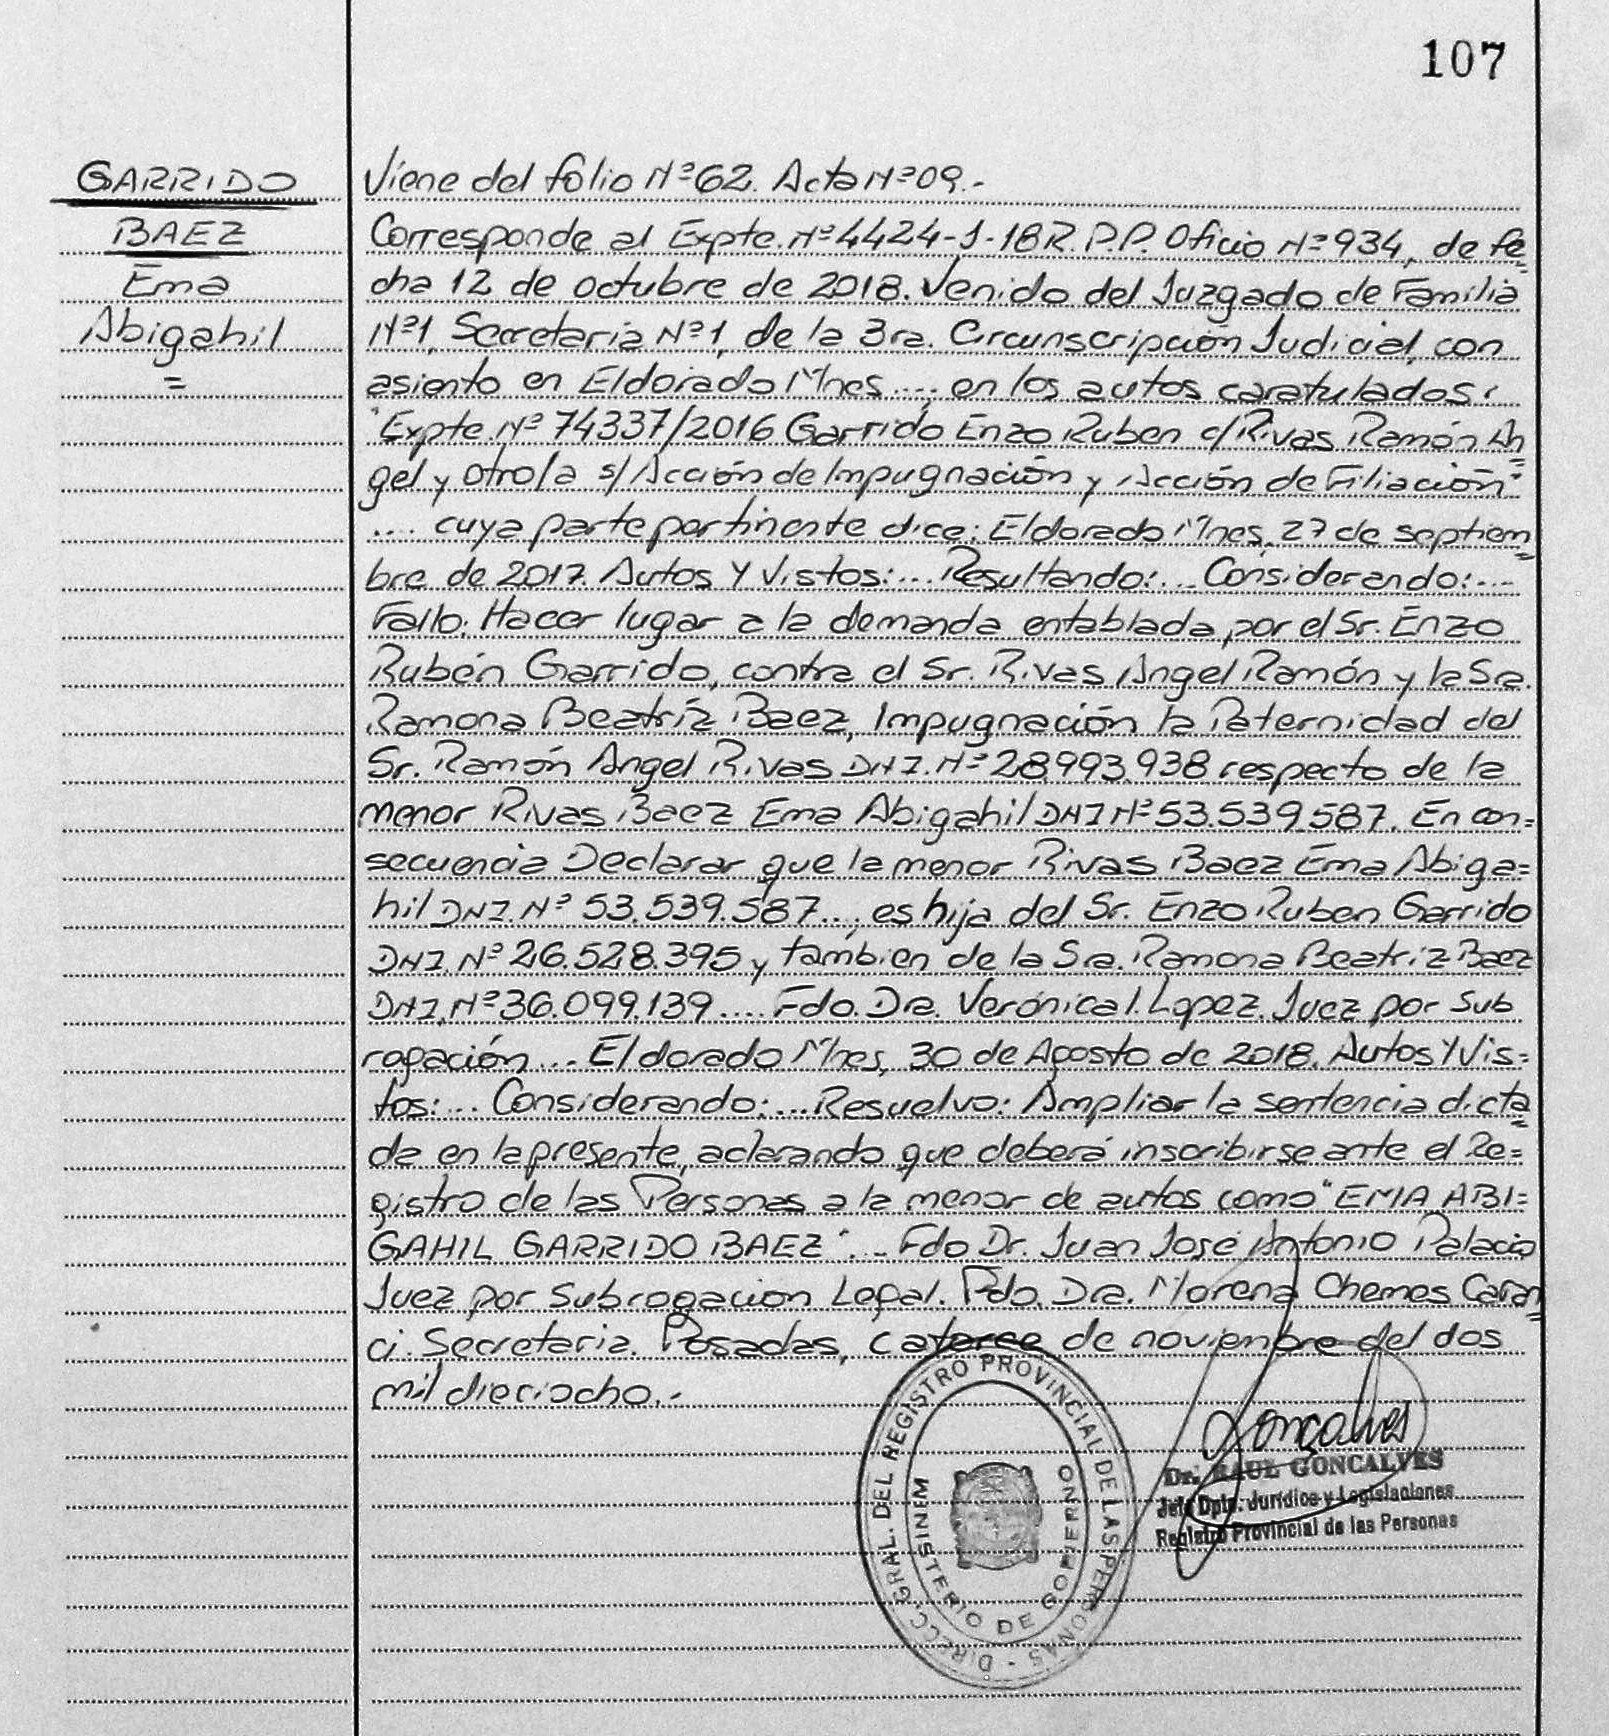 107
GARRIDO
BAEZ
Ema
Abigahil
=
Viene del folio Nº62. Acta Nº09.-
Corresponde al Expte. Nº4424-J-18 R.P.P. Oficio Nº934, de fe=
cha 12 de octubre de 2018. Venido del Juzgado de Familia
Nº1, Secretaría Nº1, de la 3ra. Circunscripción Judicial, con
asiento en Eldorado Mnes...., en los autos caratulados:
"Expte. Nº 74337/2016 Garrido Enzo Ruben c/Rivas Ramón An=
gel y otro/a s/ Acción de Impugnación y Acción de Filiación"
.... cuya parte pertinente dice: Eldorado Mnes, 27 de septiem=
bre de 2017. Autos Y Vistos:... Resultando:... Considerando:...
Fallo: Hacer lugar a la demanda entablada por el Sr. Enzo
Rubén Garrido, contra el Sr. Rivas Angel Ramón y la Sra.
Ramona Beatríz Baez, Impugnación la Paternidad del
Sr. Ramón Angel Rivas DNI. Nº 28.993.938 respecto de la
menor Rivas Baez Ema Abigahil DNI Nº 53.539.587. En con=
secuencia Declarar que la menor Rivas Baez Ema Abiga=
hil DNI. Nº 53.539.587..., es hija del Sr. Enzo Ruben Garrido
DNI. Nº 26.528.395 y tambien de la Sra. Ramona Beatriz Baez
DNI. Nº 36.099.139.... Fdo. Dra. Verónica I. Lopez. Juez por Sub
rogación... Eldorado Mnes, 30 de Agosto de 2018. Autos Y Vis=
tos:... Considerando:... Resuelvo: Ampliar la sentencia dicta=
da en la presente, aclarando que deberá inscribirse ante el Re=
gistro de las Personas a la menor de autos como "EMA ABI=
GAHIL GARRIDO BAEZ".... Fdo Dr. Juan José Antonio Palacio
Juez por Subrogacion Legal. Fdo. Dra. Morena Chemes Caran=
ci. Secretaria. Posadas, catorce de noviembre del dos
mil dieciocho.-
DIRECC. GRAL. DEL REGISTRO PROVINCIAL DE LAS PERSONAS -
MINISTERIO DE GOBIERNO
Goncalves
Dr. RAUL GONCALVES
Jefe Dpto. Jurídico y Legislaciones
Registro Provincial de las Personas